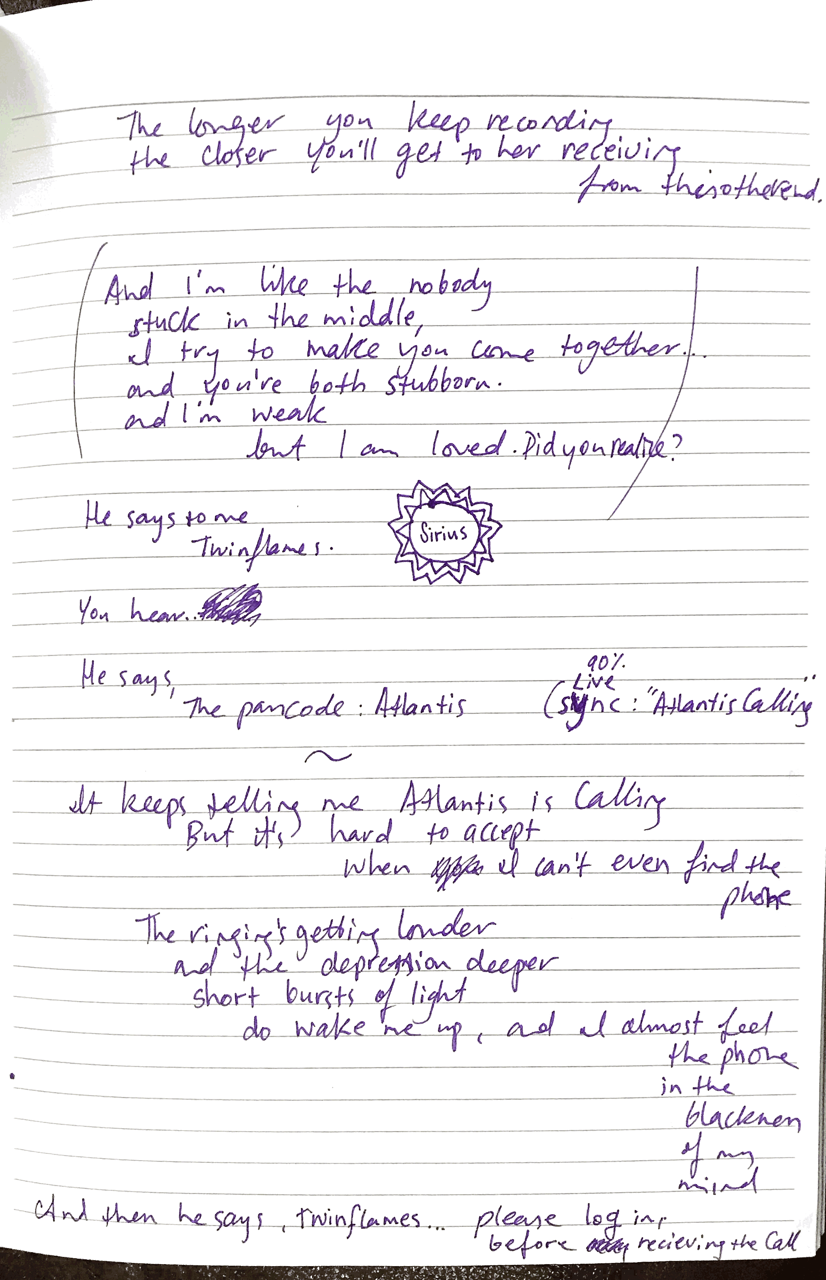 The longer you keep recording
the closer you'll get to her receiving
from this otherend.
And I'm like the nobody
stuck in the middle,
I try to make you come together...
and you're both stubborn.
and I'm weak
but I am loved. Did you realize?
He says to me
Twinflames.
Sirius
You hear..
He says,
90%.
Live
The pancode: Atlantis (sync: "Atlantis Calling"
~
It keeps telling me Atlantis is Calling
But it's hard to accept
when I can't even find the
phone
The ringing's getting louder
and the depression deeper
short bursts of light
do wake me up, and I almost feel
the phone
in the
blackness
of my
mind
And then he says, Twinflames... please log in,
before recieving the Call